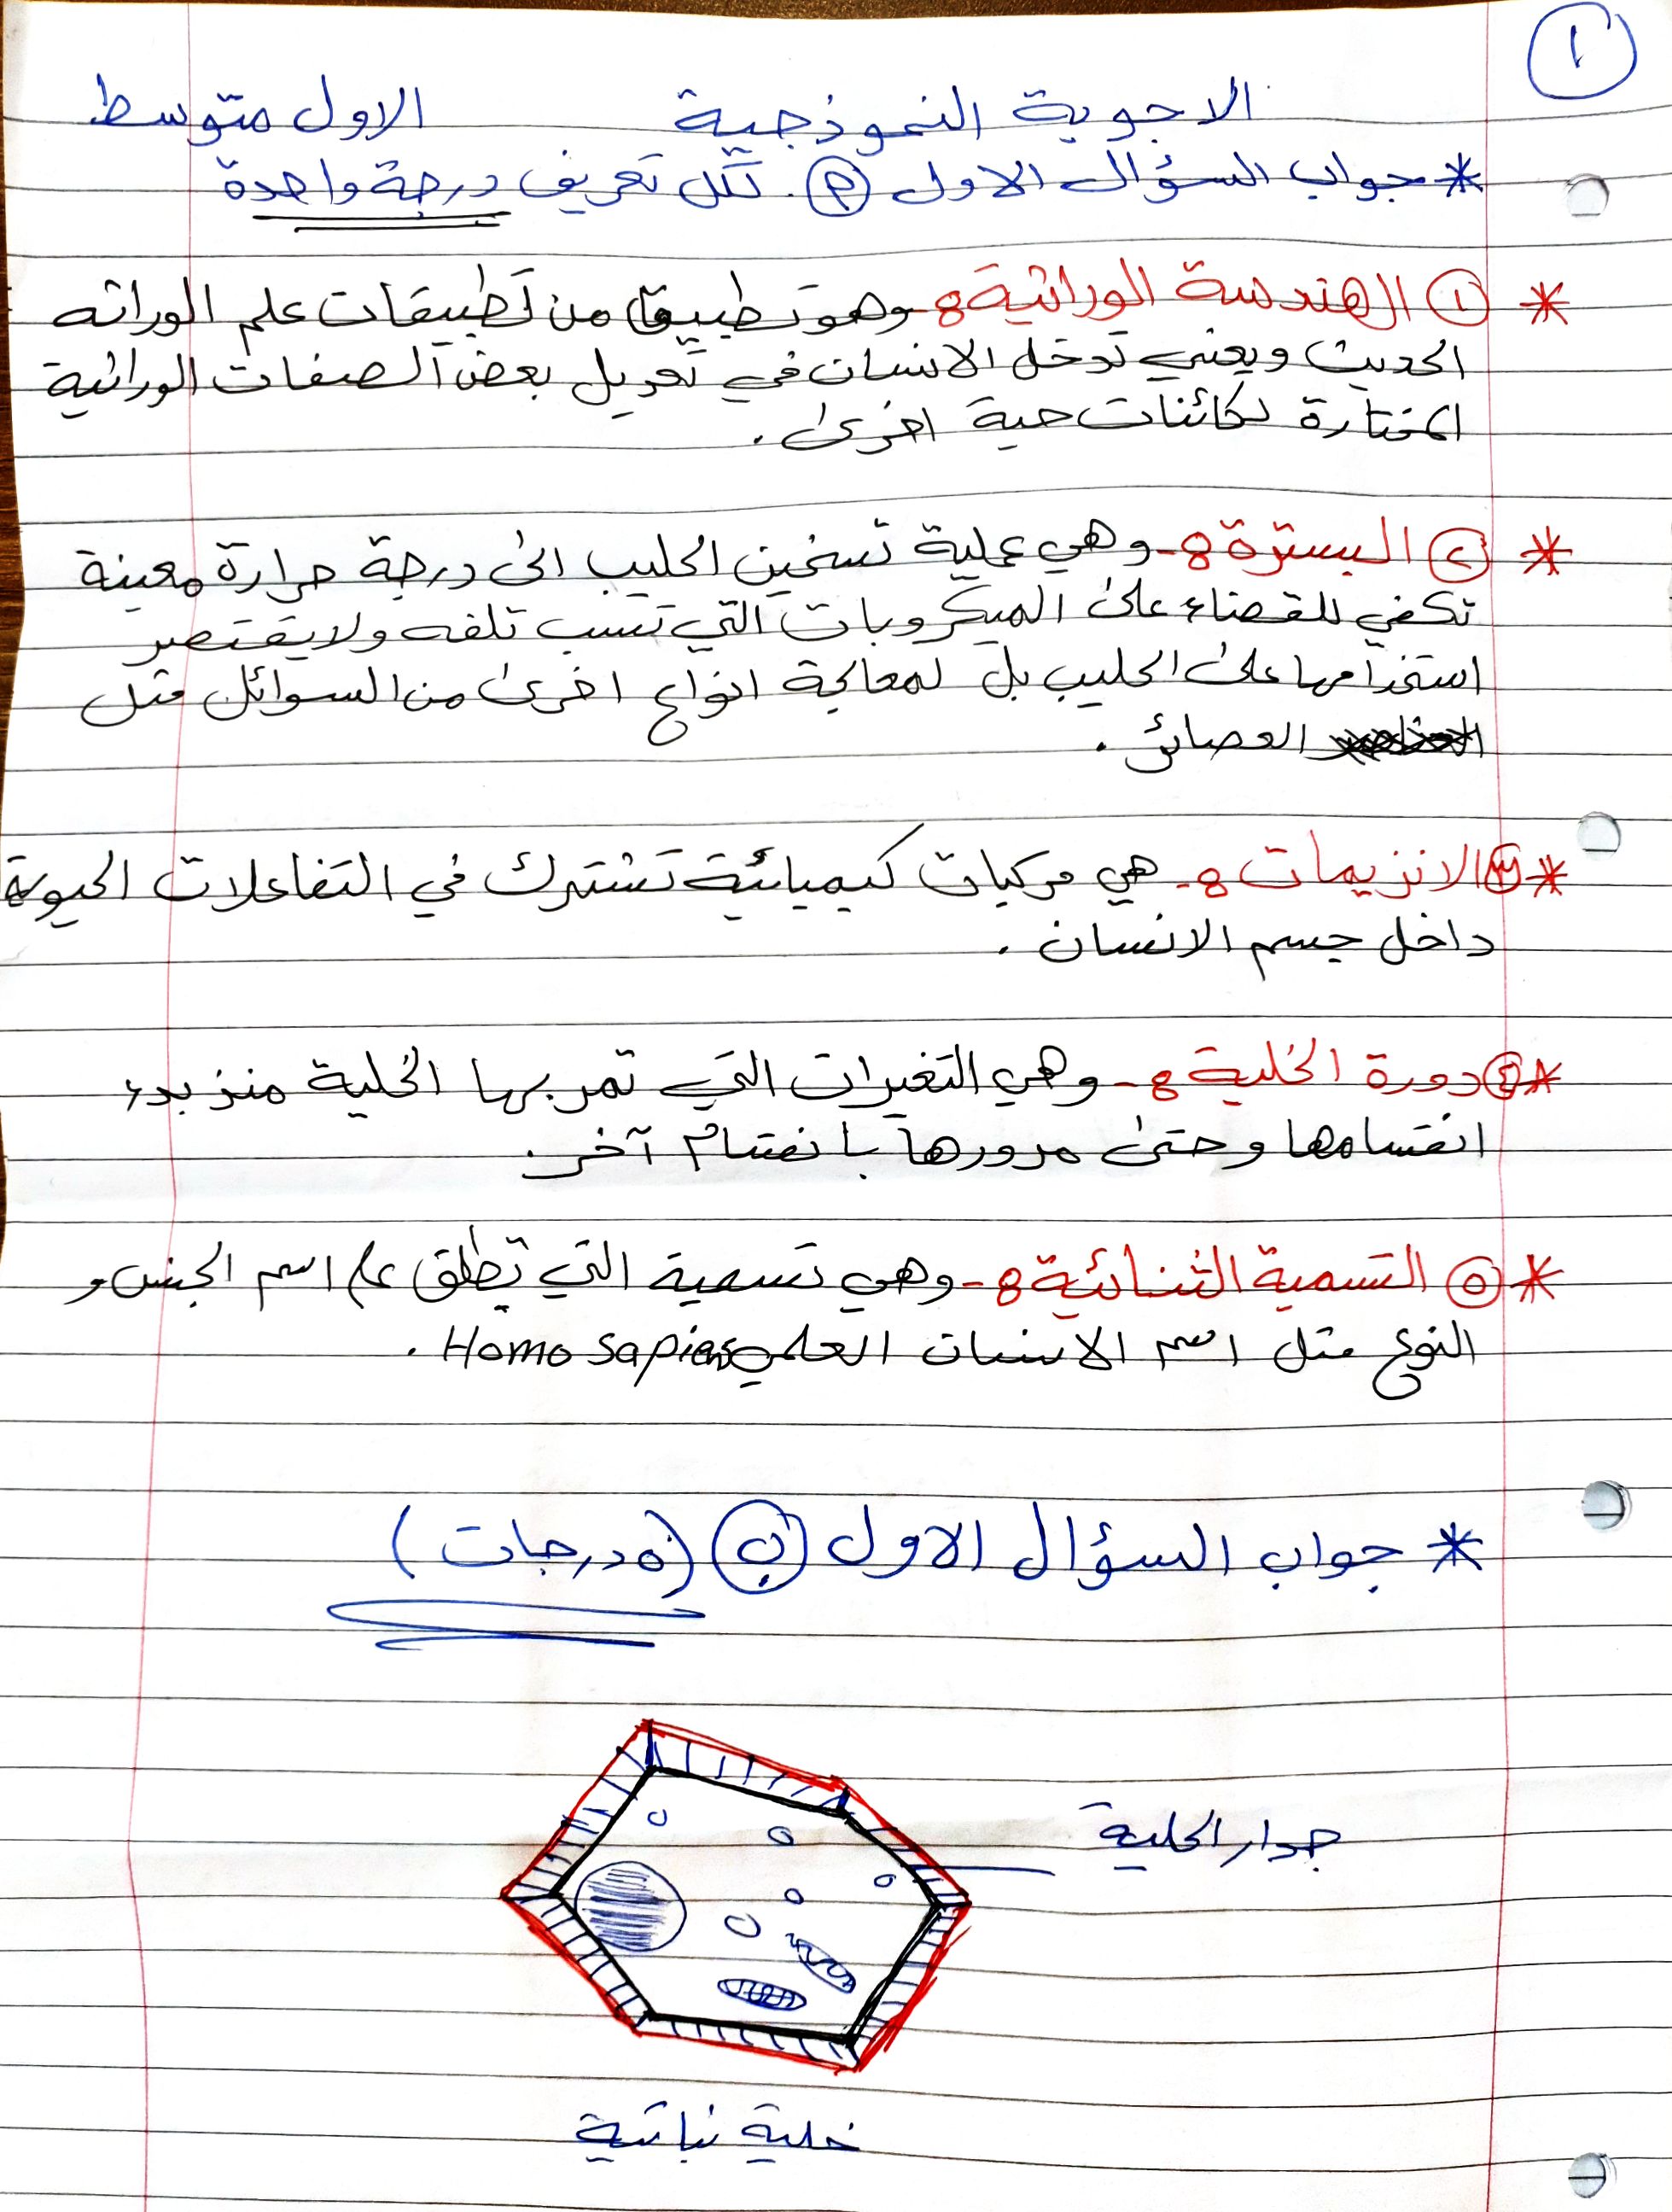 ١
الاجوبة النموذجية الاول متوسط
* جواب السؤال الاول (م). لكل تعريف درجة واحدة
* ① الهندسة الوراثية:- وهو تطبيق من تطبيقات علم الوراثه
الحديث ويعني تدخل الانسان في تعديل بعض الصفات الوراثية
المختارة لكائنات حية اخرى.
* ② البسترة:- وهي عملية تسخين الحليب الى درجة حرارة معينة
تكفي للقضاء على الميكروبات التي تسبب تلفه ولا يقتصر
استخدامها على الحليب بل لمعالجة انواع اخرى من السوائل مثل
العصائر.
* ③ الانزيمات:- هي مركبات كيميائية تشترك في التفاعلات الحيوية
داخل جسم الانسان.
* ④ دورة الخلية:- وهي التغيرات التي تمر بها الخلية منذ بدء
انقسامها وحتى مرورها بانقسام آخر.
* ⑤ التسمية الثنائية:- وهي تسمية التي تطلق على اسم الجنس و
النوع مثل اسم الانسان العلمي Homo sapiens.
* جواب السؤال الاول (ب) (٥ درجات)
جدار الخلية
خلية نباتية